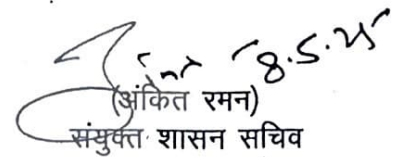 8.5.25
(अंकित रमन)
संयुक्त शासन सचिव